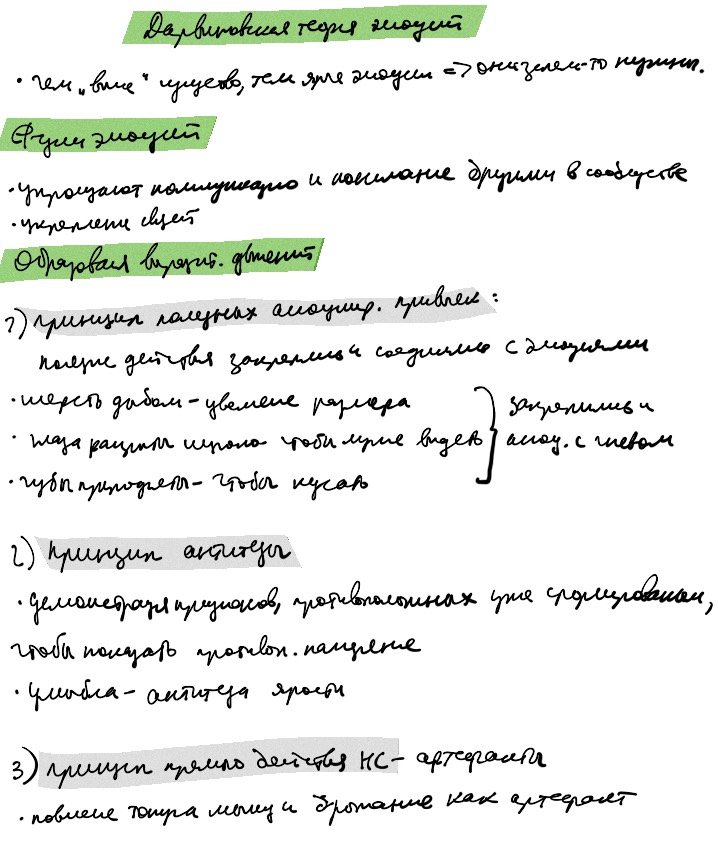 Дарвиновская теория эмоций
• чем „выше“ существо, тем ярче эмоции => они зачем-то нужны.
Функции эмоций
• упрощают коммуникацию и понимание другими в сообществе
• укрепление связей
Образования выразит. движений
1) принцип полезных ассоциир. привычек:
полезные действия закрепились и соединились с эмоциями
• шерсть дыбом - увеличение размера
• глаза раскрыты широко чтобы лучше видеть
• губы приподняты - чтобы кусать
закрепились и
ассоц. с гневом
2) принцип антитезы
• демонстрация признаков, противоположных уже сформированным,
чтобы показать противоп. намерение
• улыбка - антитеза ярости
3) принцип прямого действия НС - артефакты
• повышение тонуса мышц и дрожание как артефакт